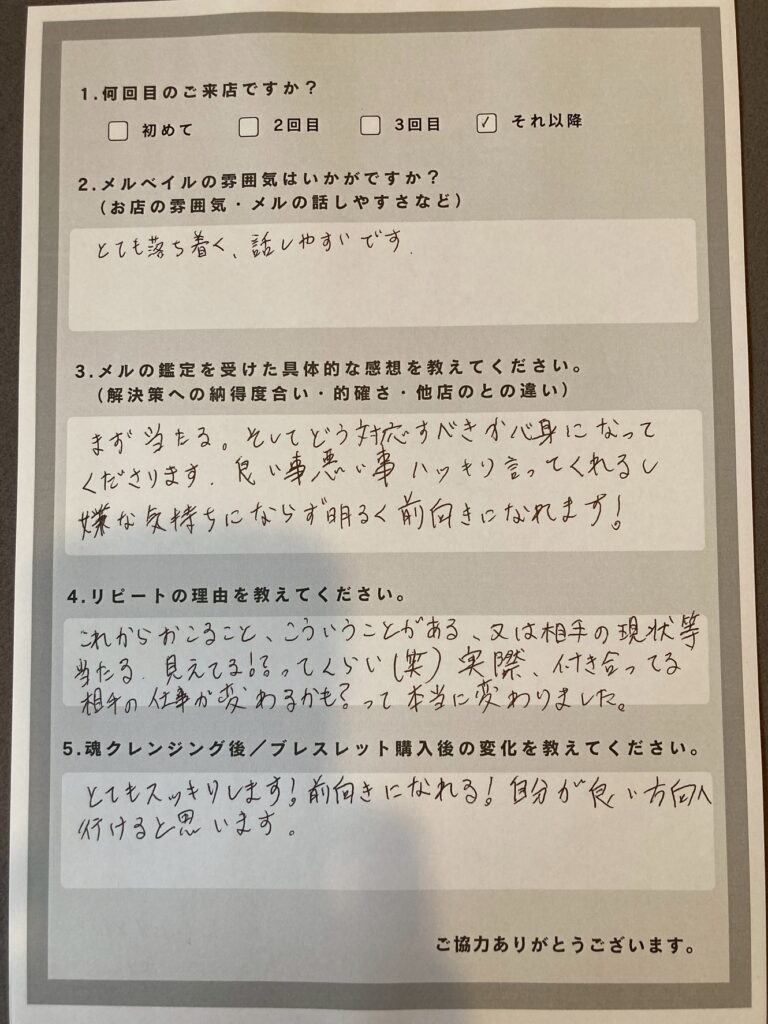 1.何回目のご来店ですか？
初めて 2回目 3回目 ✓ それ以降
2.メルベイルの雰囲気はいかがですか？
（お店の雰囲気・メルの話しやすさなど）
とても落ち着く、話しやすいです.
3.メルの鑑定を受けた具体的な感想を教えてください。
（解決策への納得度合い・的確さ・他店のとの違い）
まず当たる。そしてどう対応すべきか心身になって
くださります. 良い事悪い事ハッキリ言ってくれるし
嫌な気持ちにならず明るく前向きになれます!
4.リピートの理由を教えてください。
これからおこること、こういうことがある、又は相手の現状等
当たる. 見えてる!?ってくらい(笑) 実際、付き合ってる
相手の仕事が変わるかも?って本当に変わりました。
5.魂クレンジング後／ブレスレット購入後の変化を教えてください。
とてもスッキリします!前向きになれる!自分が良い方向へ
行けると思います。
ご協力ありがとうございます。